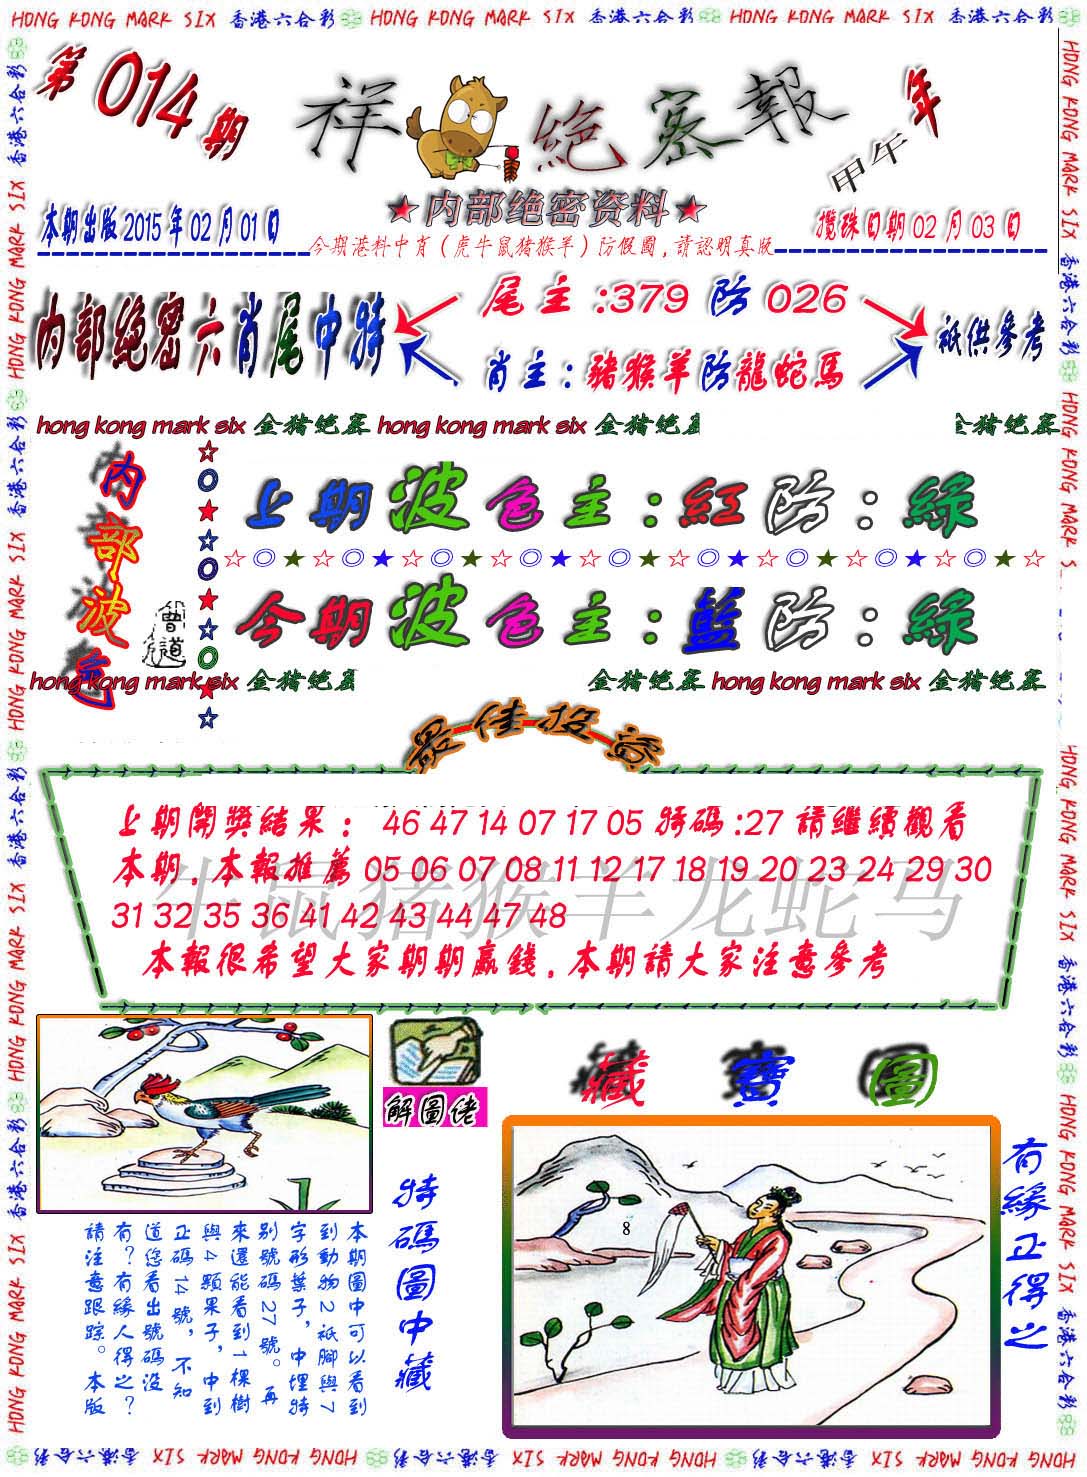 HONG KONG MARK SIX 香港六合彩 HONG KONG MARK SIX 香港六合彩 HONG KONG MARK SIX 香港六合彩
第014期
祥 絕密報
甲午年
★内部绝密资料★
本期出版2015年02月01日
今期港料中肖（虎牛鼠猪猴羊）防假圖,請認明真版
攪珠日期02月03日
内部绝密六肖尾中特
尾主:379防026
肖主:豬猴羊防龍蛇馬
祇供參考
hong kong mark six 金猪绝密 hong kong mark six 金猪绝密
金猪绝密
内部波色
曾道
上期波色主:紅防:綠
☆◎★☆◎★☆◎★☆◎★☆◎★☆◎★☆◎★☆◎★☆◎★☆
今期波色主:藍防:綠
hong kong mark six 金猪绝密
金猪绝密 hong kong mark six 金猪绝密
最佳投资
上期開獎結果： 46 47 14 07 17 05 特碼:27 請繼續觀看
本期,本報推薦 05 06 07 08 11 12 17 18 19 20 23 24 29 30
31 32 35 36 41 42 43 44 47 48
牛鼠猪猴羊龙蛇马
本報很希望大家期期贏錢,本期請大家注意參考
解圖佬
藏寶圖
特碼圖中藏
本期圖中可以看到
到動物2祇腳與7
字形葉子，中埋特
别號碼27號。再
來還能看到1棵樹
與4顆果子，中到
正碼14號，不知
道您看出號碼没
有？有緣人得之？
請注意跟踪。本版
8
有緣正得之
HONG KONG MARK SIX 香港六合彩 HONG KONG MARK SIX 香港六合彩 HONG KONG MARK SIX 香港六合彩